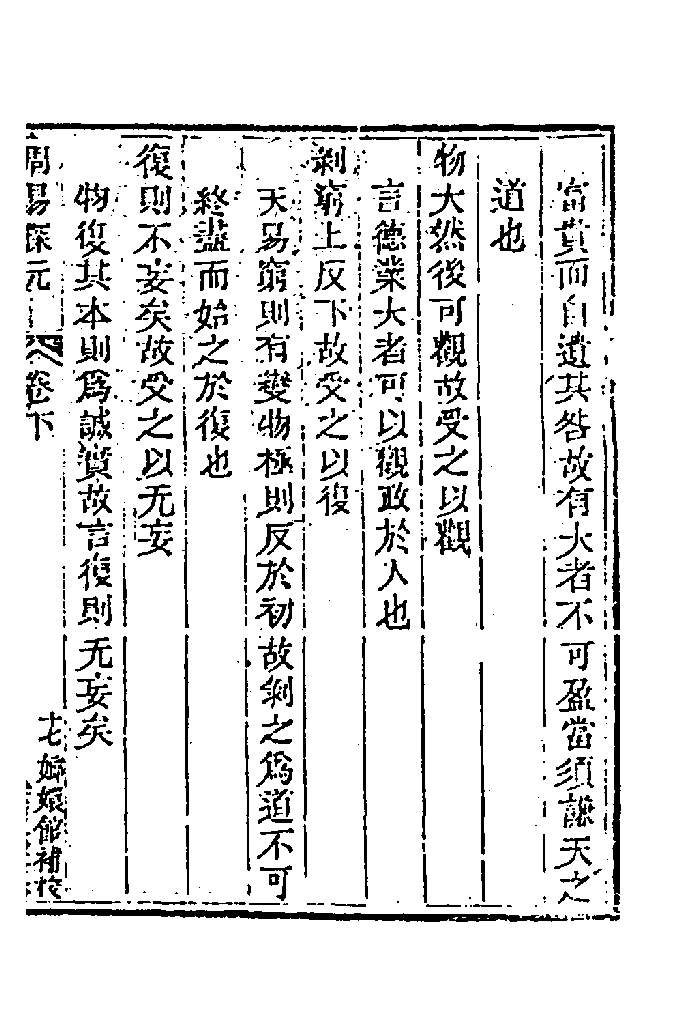 富貴而自遺其咎故有大者不可盈當須謙天之
道也
物大然後可觀故受之以觀
言德業大者可以觀政於人也
剝窮上反下故受之以復
天易窮則有變物極則反於初故剝之爲道不可
終盡而始之於復也
復則不妄矣故受之以无妄
物復其本則爲誠實故言復則无妄矣
周易探元 卷下 十七 嫏嬛館補校